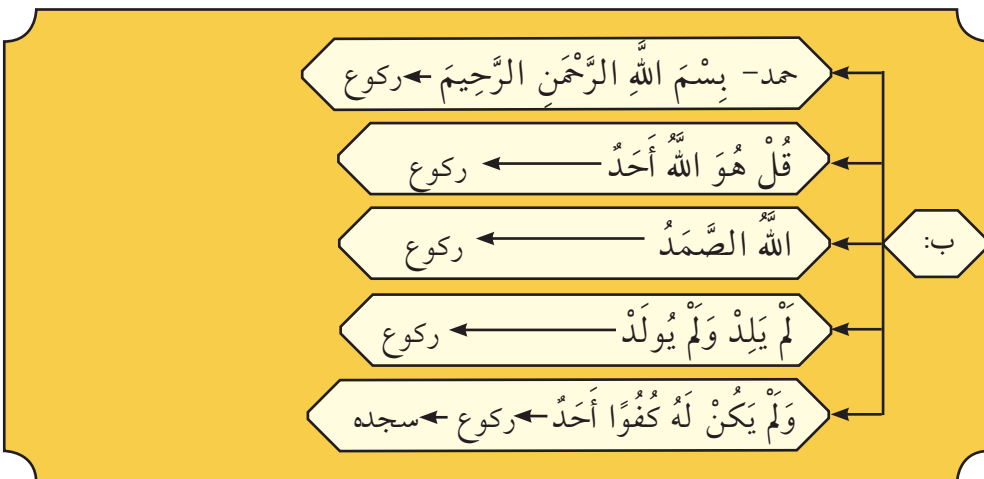 حمد- بِسْمَ اللَّهِ الرَّحْمَنِ الرَّحِيمَ ← رکوع
قُلْ هُوَ اللَّهُ أَحَدٌ ← رکوع
ب:
اللَّهُ الصَّمَدُ ← رکوع
لَمْ يَلِدْ وَلَمْ يُولَدْ ← رکوع
وَلَمْ يَكُنْ لَهُ كُفُوًا أَحَدٌ ← رکوع ← سجده